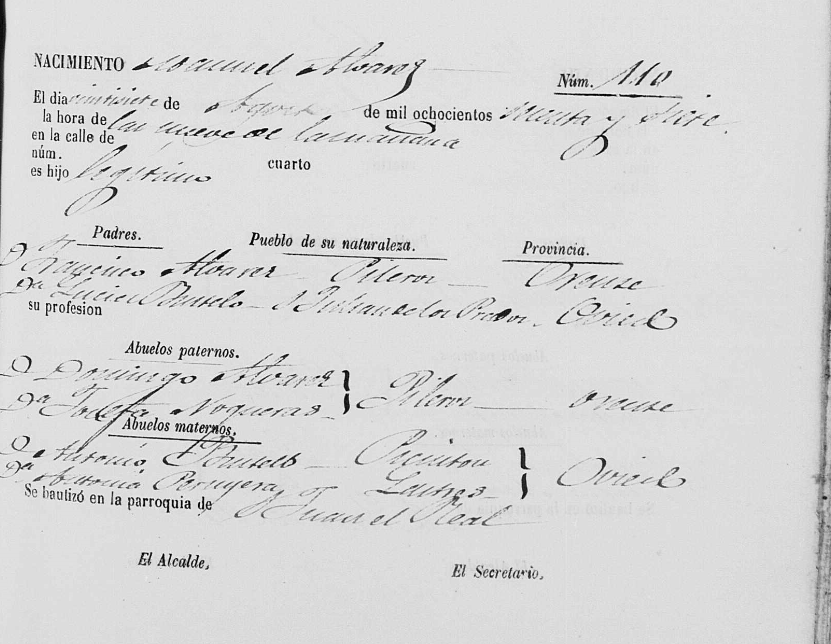 NACIMIENTO Manuel Alvarez Núm. 110
El dia veintisiete de Agosto de mil ochocientos setenta y siete.
la hora de las nueve de la mañana
en la calle de
núm. cuarto
es hijo legitimo
Padres. Pueblo de su naturaleza. Provincia.
D Francisco Alvarez Orense
Da Lucia S Julian de los Prados. Oviedo
su profesion
Abuelos paternos.
D Domingo Alvarez Orense
Da Josefa Nogueras
Abuelos maternos.
D Antonio Oviedo
Da Antonia
Se bautizó en la parroquia de S Juan el Real
El Alcalde, El Secretario,